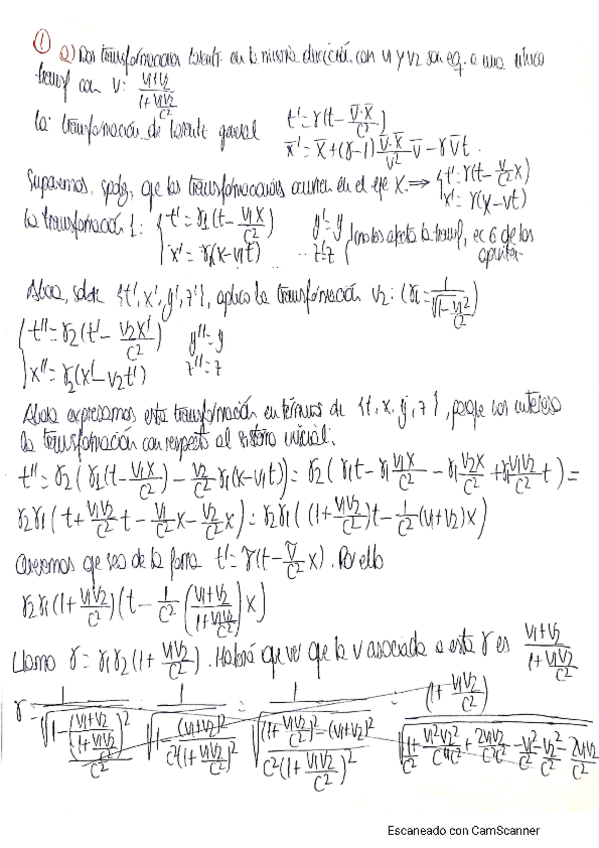 ① a) Dos transformaciones Lorentz en la misma dirección con v1 y v2 son eq. a una única
transf con v: (v1+v2)/(1+v1v2/c²)
la transformación de Lorentz general t' = γ(t - v̄·x̄/c²)
x̄' = x̄ + (γ-1) (v̄·x̄/v²) v̄ - γv̄t.
Supongamos, spdg, que las transformaciones ocurren en el eje X. ⇒ {t' = γ(t - v/c² x)
x' = γ(x - vt)
la transformación 1: {t' = γ1(t - v1x/c²) y' = y
x' = γ1(x - v1t) z' = z (no les afecta la transf, ec 6 de los
apuntes.
Ahora, sobre {t', x', y', z'}, aplico la transformación v2: (γi = 1/√(1 - vi²/c²))
{t'' = γ2(t' - v2x'/c²) y'' = y
x'' = γ2(x' - v2t') z'' = z
Ahora expresamos esta transformación en términos de {t, x, y, z}, porque nos interesa
la transformación con respecto al sistema inicial:
t'' = γ2(γ1(t - v1x/c²) - v2/c² γ1(x - v1t)) = γ2(γ1t - γ1 v1x/c² - γ1 v2x/c² + γ1 v1v2/c² t) =
γ2γ1(t + v1v2/c² t - v1/c² x - v2/c² x) = γ2γ1((1 + v1v2/c²)t - 1/c² (v1+v2)x)
Queremos que sea de la forma t' = γ(t - v/c² x). Por ello
γ2γ1(1 + v1v2/c²)(t - 1/c² ((v1+v2)/(1+v1v2/c²))x)
Llamo γ = γ1γ2(1 + v1v2/c²). Habrá que ver que la v asociada a esta γ es (v1+v2)/(1+v1v2/c²)
Escaneado con CamScanner